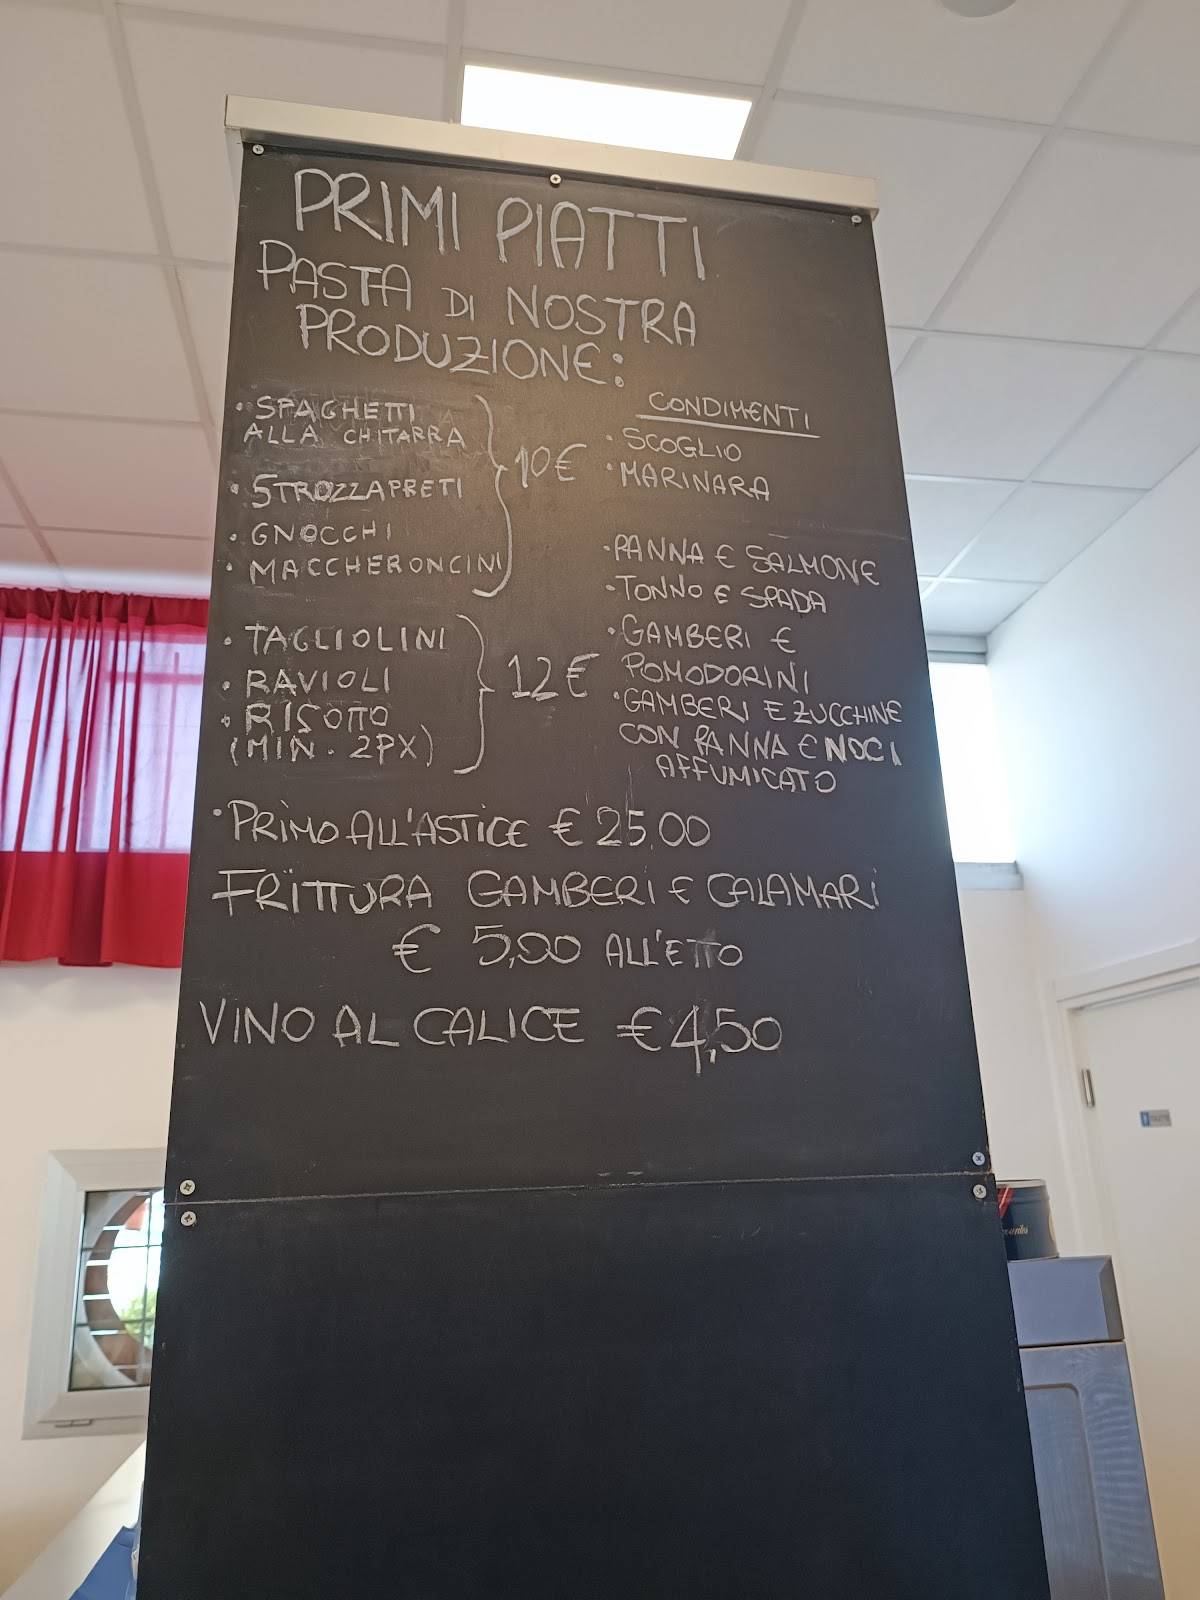 PRIMI PIATTI
PASTA DI NOSTRA
PRODUZIONE:
• SPAGHETTI
ALLA CHITARRA
• STROZZAPRETI
• GNOCCHI
• MACCHERONCINI
10€
• TAGLIOLINI
• RAVIOLI
• RISOTTO
(MIN. 2PX)
12€
CONDIMENTI
• SCOGLIO
• MARINARA
• PANNA E SALMONE
• TONNO E SPADA
• GAMBERI E
POMODORINI
• GAMBERI E ZUCCHINE
CON PANNA E NOCI
AFFUMICATO
• PRIMO ALL'ASTICE € 25,00
FRITTURA GAMBERI E CALAMARI
€ 5,00 ALL'ETTO
VINO AL CALICE € 4,50